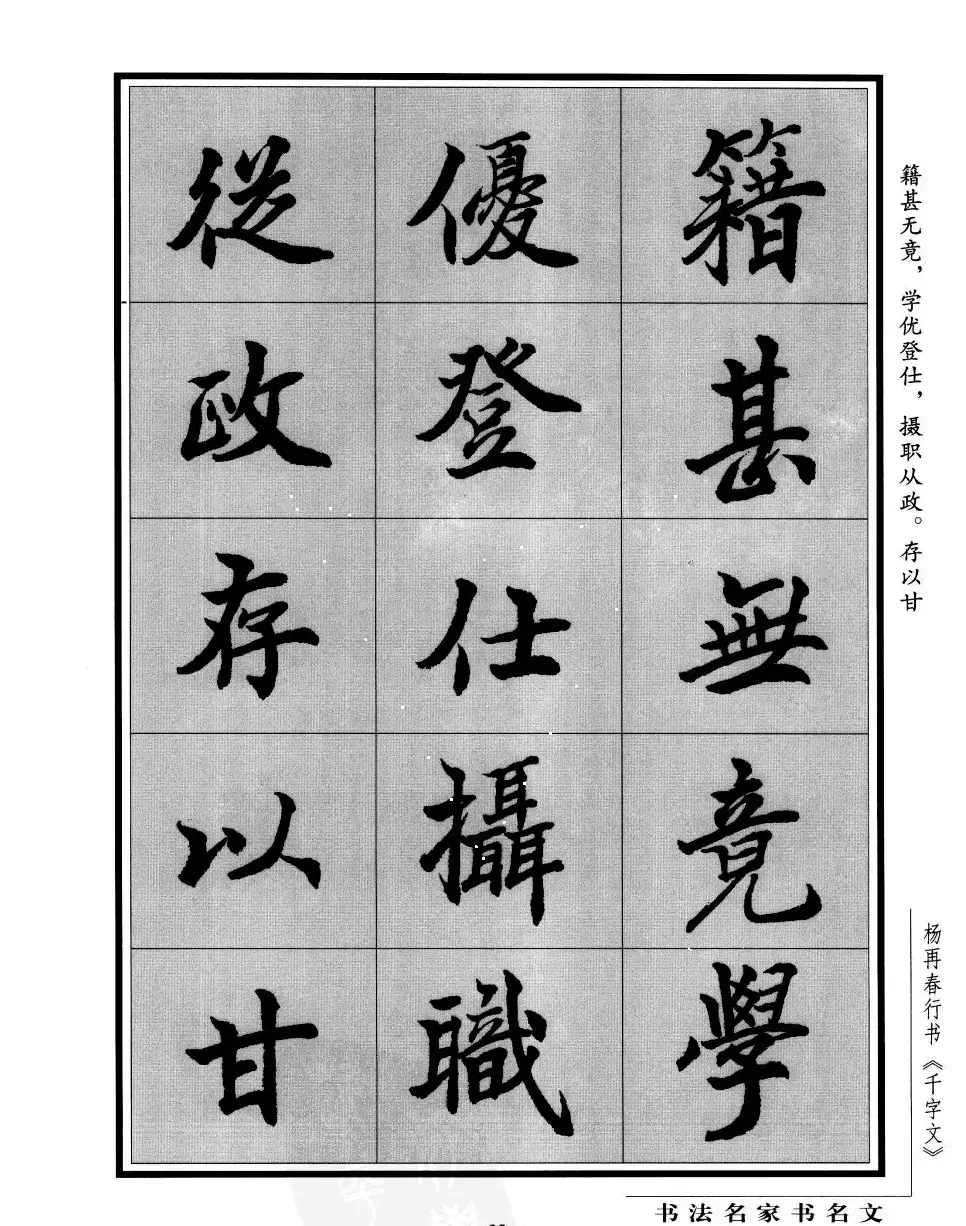 籍甚無竟學
優登仕攝職
從政存以甘
籍甚无竟，学优登仕，摄职从政。存以甘
杨再春行书《千字文》
书法名家书名文